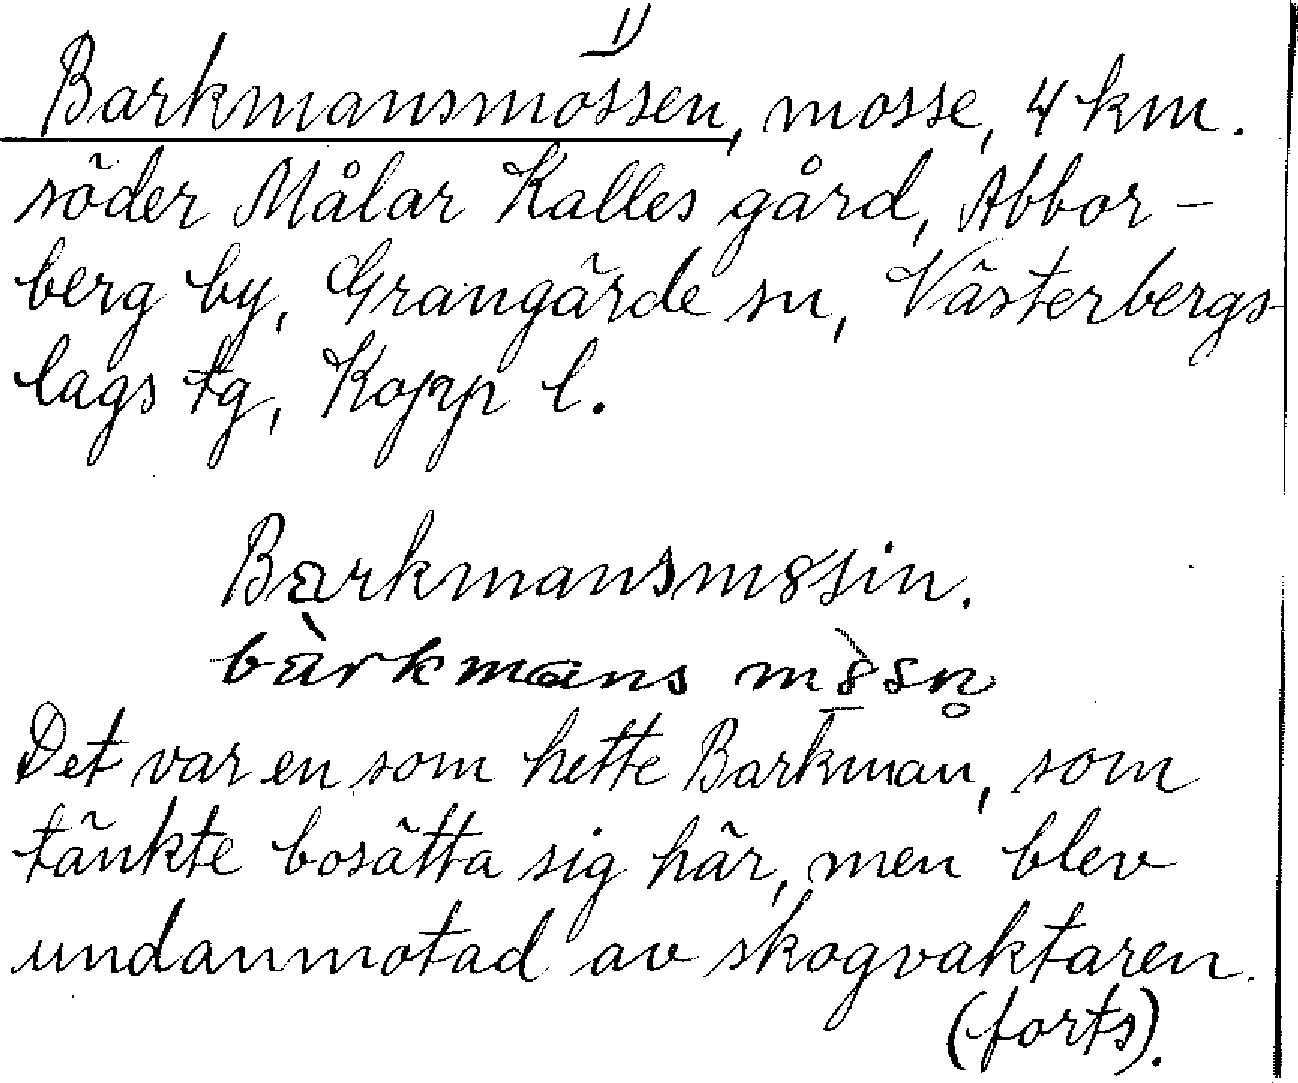 1)
Barkmansmossen, mosse, 4 km.
söder Målar Kalles gård, Abbor-
berg by, Grangärde sn, Västerbergs-
lags tg, Kopp l.
Barkmansm8sin.
bàrkmans m8̀sn̥
Det var en som hette Barkman, som
tänkte bosätta sig här, men blev
undanmotad av skogvaktaren.
(forts).